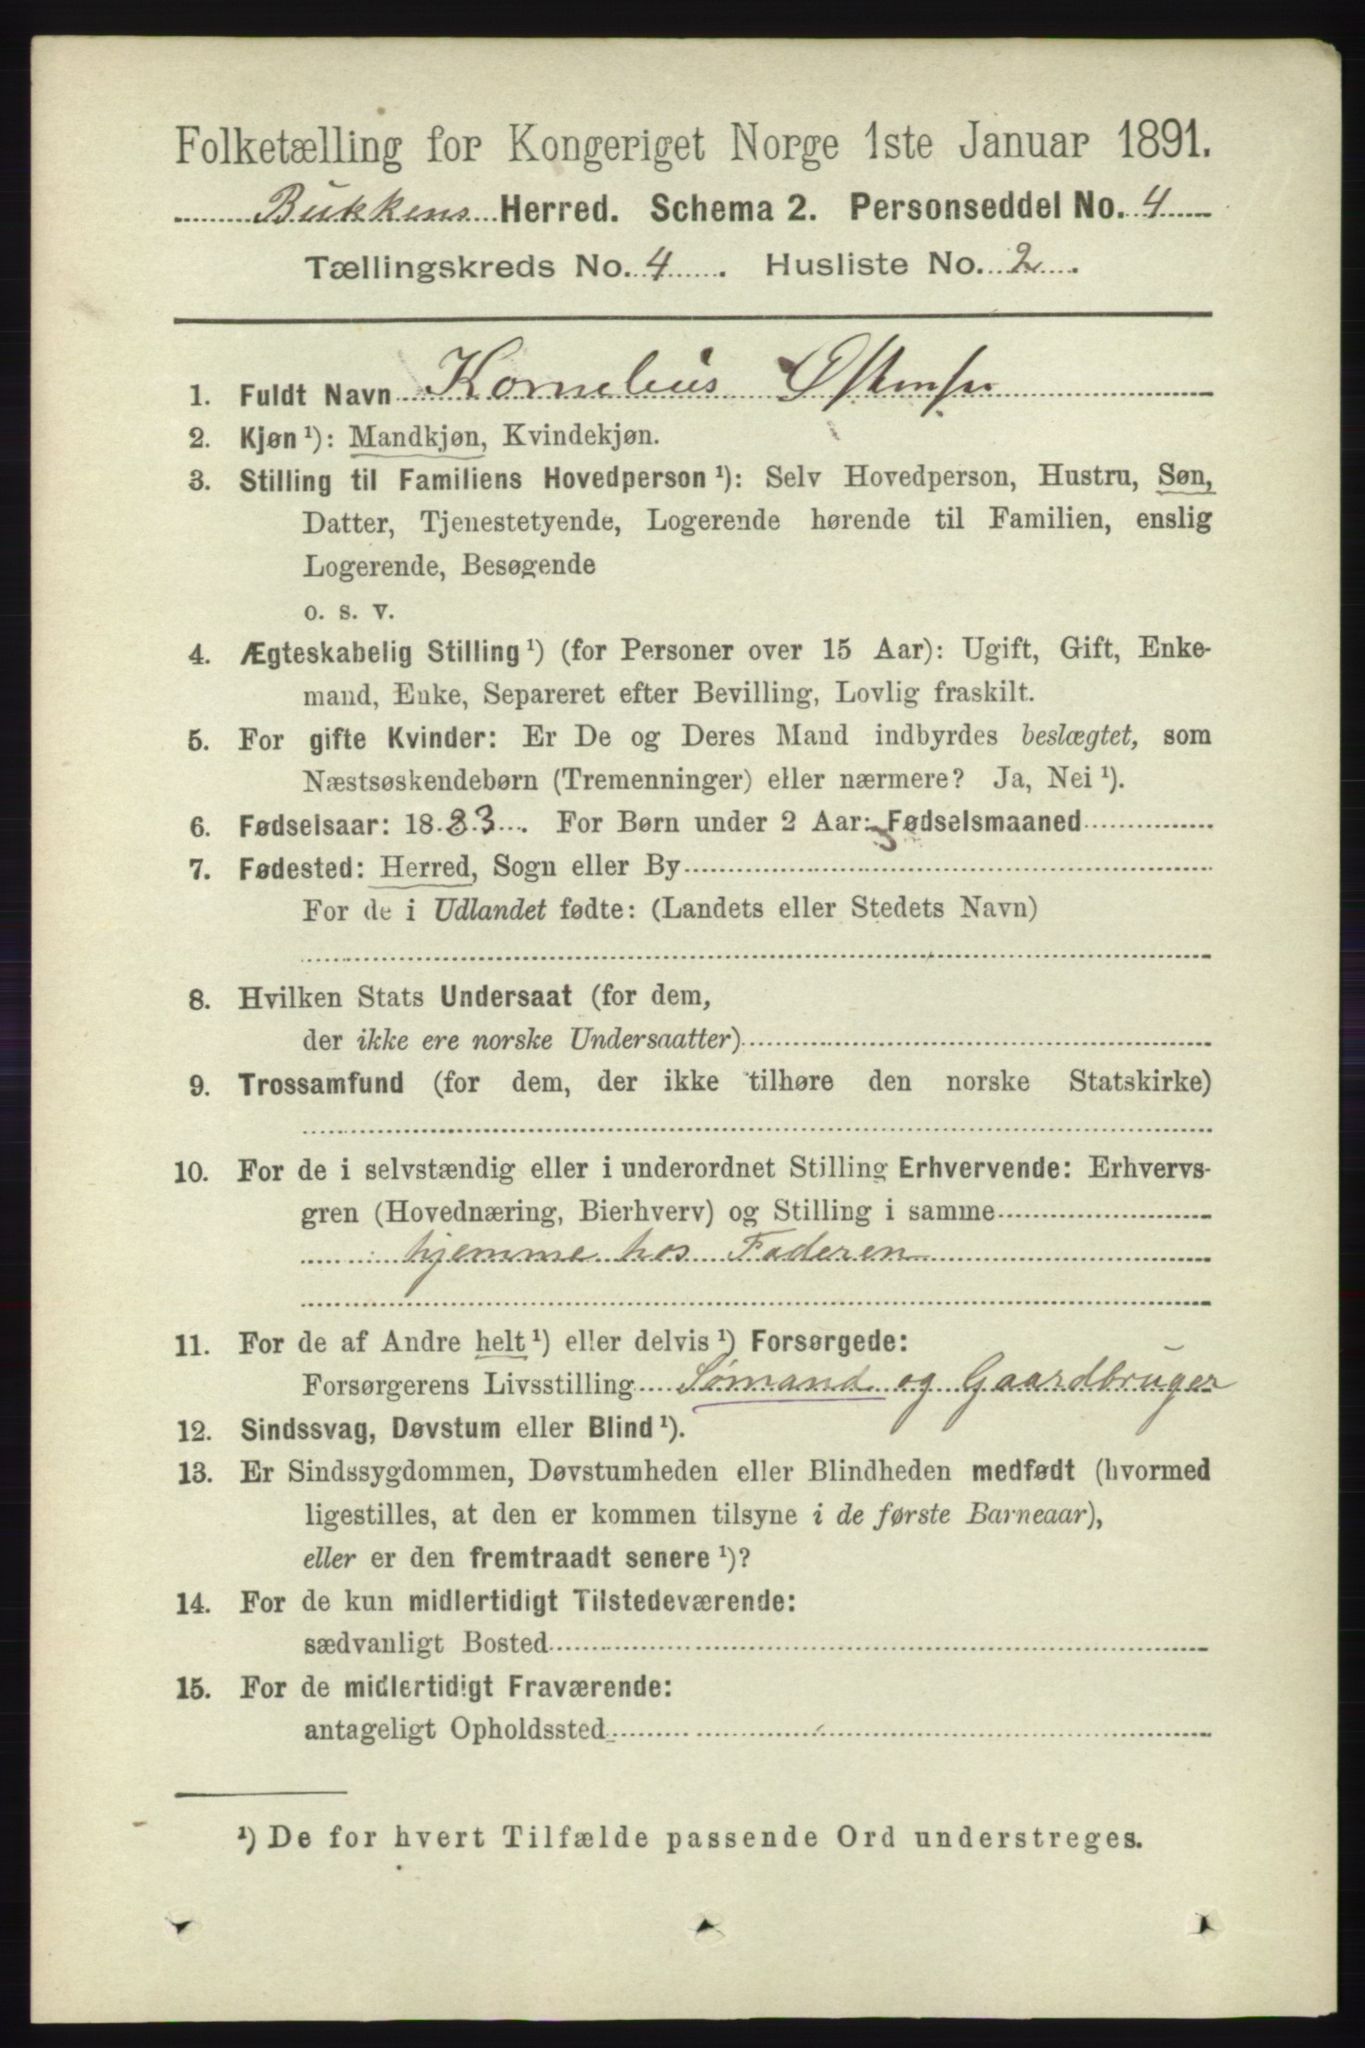 Folketælling for Kongeriget Norge 1ste Januar 1891.
Bukkens Herred. Schema 2. Personseddel No. 4
Tællingskreds No. 4. Husliste No. 2.
1. Fuldt Navn Kornelius Østensen
2. Kjøn ¹): Mandkjøn, Kvindekjøn.
3. Stilling til Familiens Hovedperson ¹): Selv Hovedperson, Hustru, Søn,
Datter, Tjenestetyende, Logerende hørende til Familien, enslig
Logerende, Besøgende
o. s. v.
4. Ægteskabelig Stilling ¹) (for Personer over 15 Aar): Ugift, Gift, Enke-
mand, Enke, Separeret efter Bevilling, Lovlig fraskilt.
5. For gifte Kvinder: Er De og Deres Mand indbyrdes beslægtet, som
Næstsøskendebørn (Tremenninger) eller nærmere? Ja, Nei ¹).
6. Fødselsaar: 1883. For Børn under 2 Aar: Fødselsmaaned
7. Fødested: Herred, Sogn eller By
For de i Udlandet fødte: (Landets eller Stedets Navn)
8. Hvilken Stats Undersaat (for dem,
der ikke ere norske Undersaatter)
9. Trossamfund (for dem, der ikke tilhøre den norske Statskirke)
10. For de i selvstændig eller i underordnet Stilling Erhvervende: Erhvervs-
gren (Hovednæring, Bierhverv) og Stilling i samme
hjemme hos Faderen
11. For de af Andre helt ¹) eller delvis ¹) Forsørgede:
Forsørgerens Livsstilling Sømand og Gaardbruger
12. Sindssvag, Døvstum eller Blind ¹).
13. Er Sindssygdommen, Døvstumheden eller Blindheden medfødt (hvormed
ligestilles, at den er kommen tilsyne i de første Barneaar),
eller er den fremtraadt senere ¹)?
14. For de kun midlertidigt Tilstedeværende:
sædvanligt Bosted
15. For de midlertidigt Fraværende:
antageligt Opholdssted
¹) De for hvert Tilfælde passende Ord understreges.